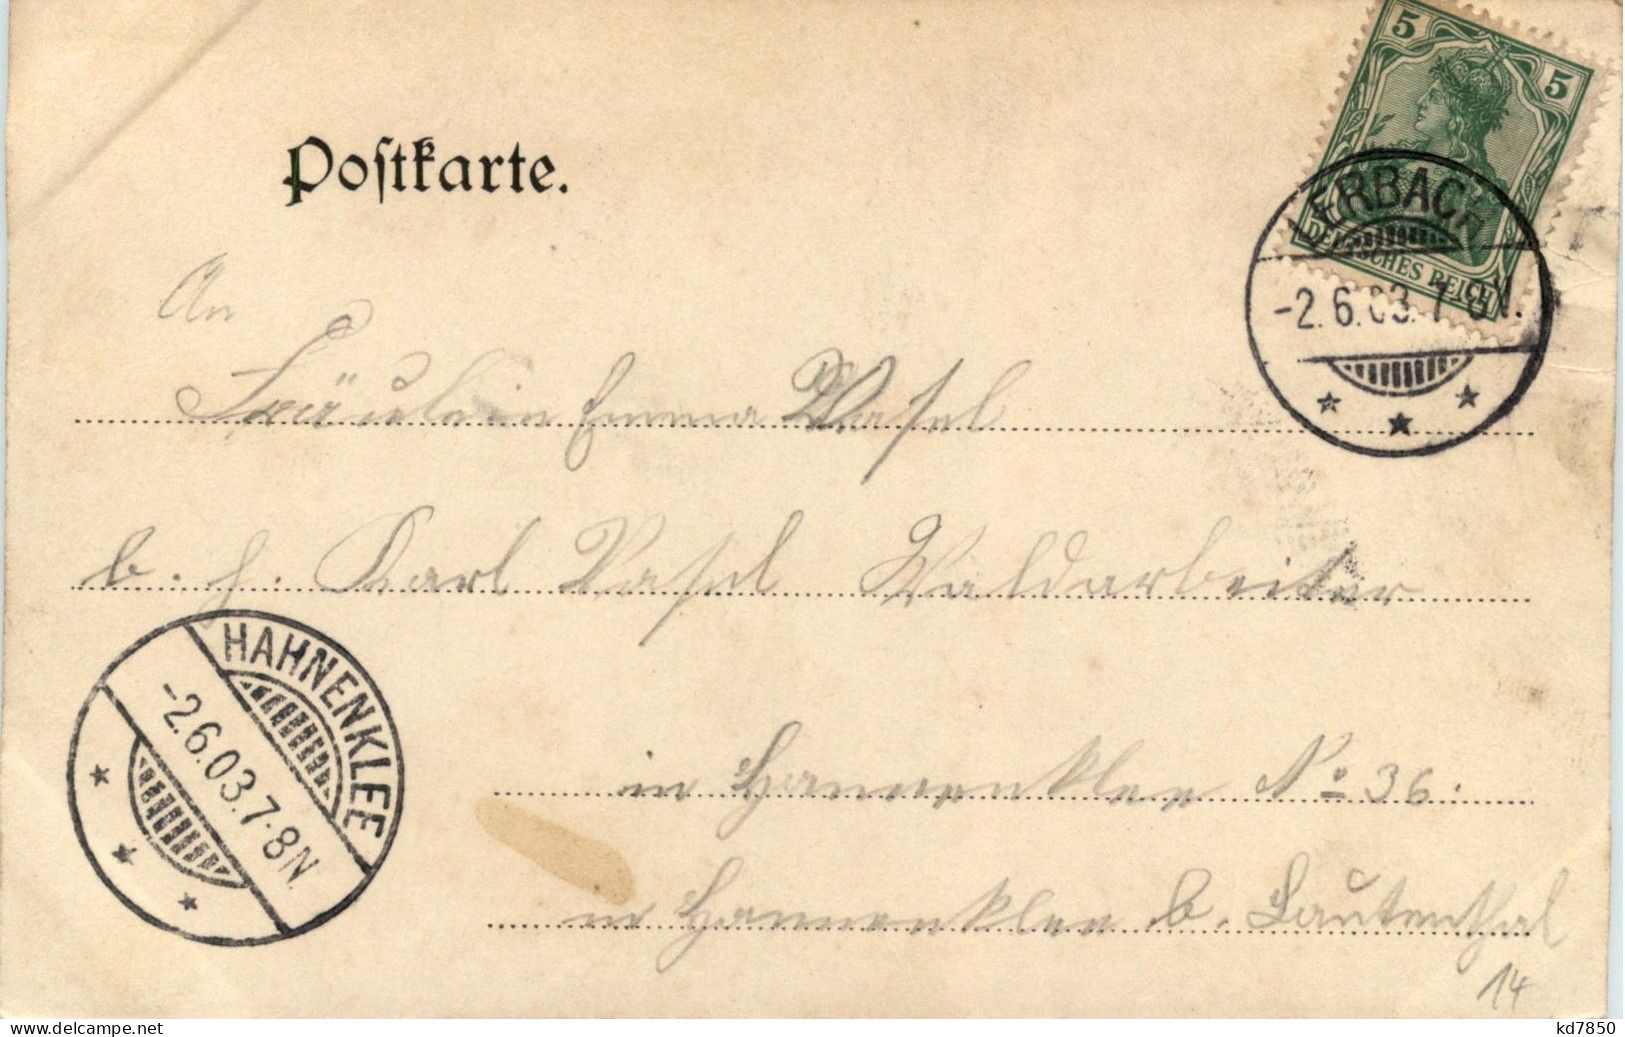 Postkarte.
5 5
DEUTSCHES REICH
LERBACH
-2.6.03.7-8N.
An
Fräulein Emma Wasel
b. H. Karl Wasel Waldarbeiter
HAHNENKLEE
-2.6.03.7-8N.
in Hannenklee No 36.
in Hannenklee b. Lautenthal
14
delcampe.net
kd7850